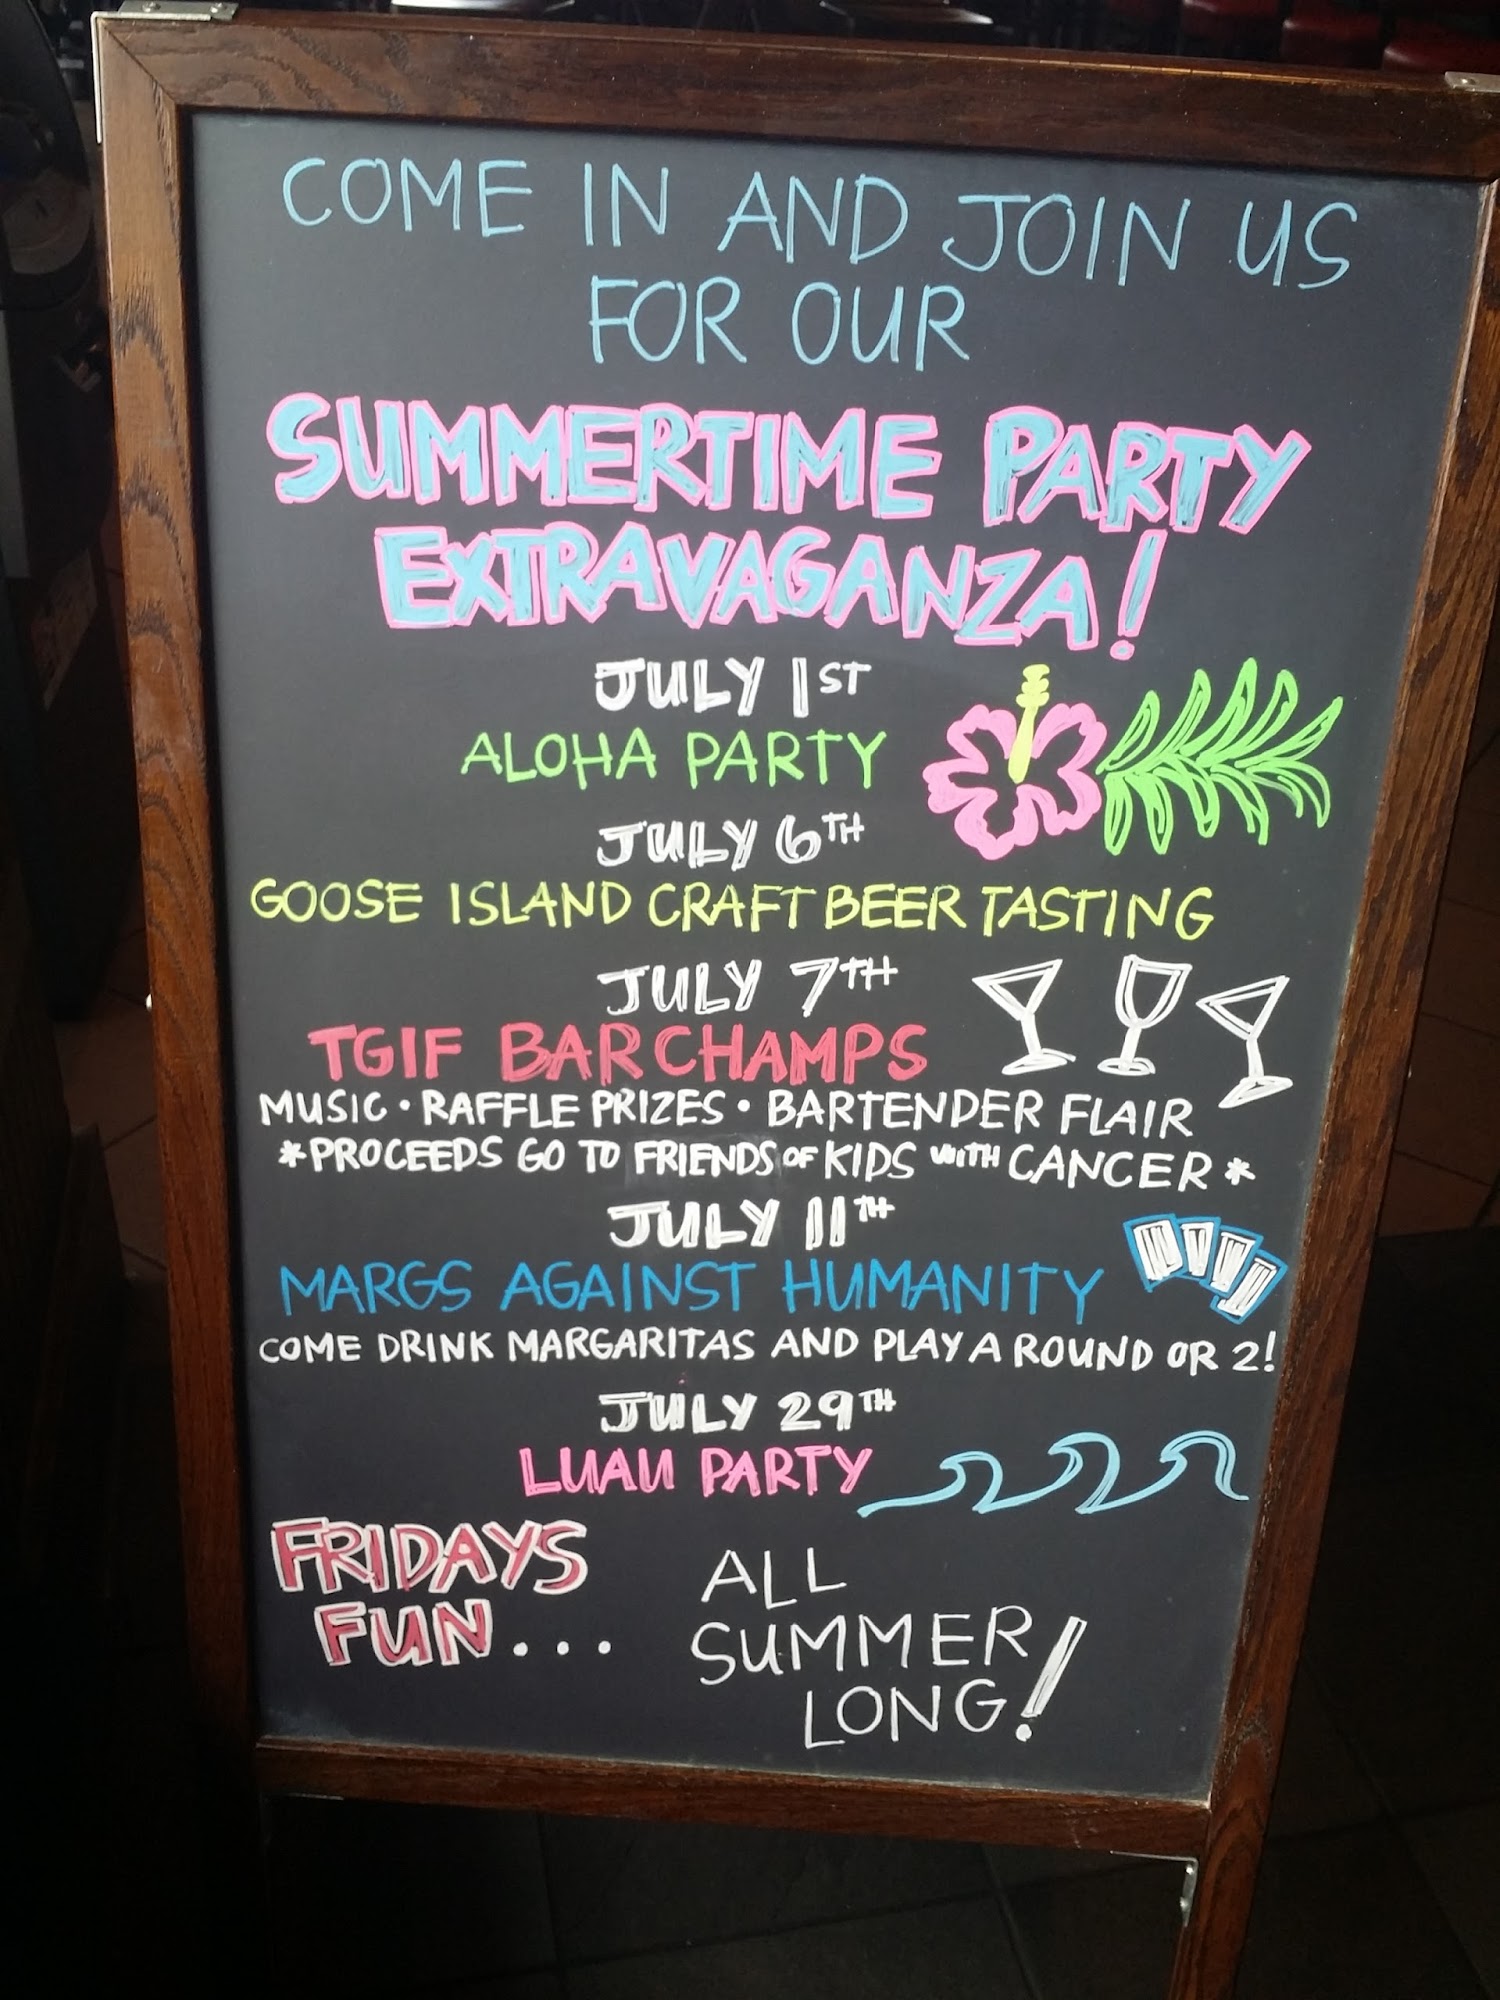 COME IN AND JOIN US
FOR OUR
SUMMERTIME PARTY
EXTRAVAGANZA!
JULY 1ST
ALOHA PARTY
JULY 6TH
GOOSE ISLAND CRAFT BEER TASTING
JULY 7TH
TGIF BAR CHAMPS
MUSIC • RAFFLE PRIZES • BARTENDER FLAIR
*PROCEEDS GO TO FRIENDS OF KIDS WITH CANCER*
JULY 11TH
MARGS AGAINST HUMANITY
COME DRINK MARGARITAS AND PLAY A ROUND OR 2!
JULY 29TH
LUAU PARTY
FRIDAYS
FUN...
ALL
SUMMER
LONG!